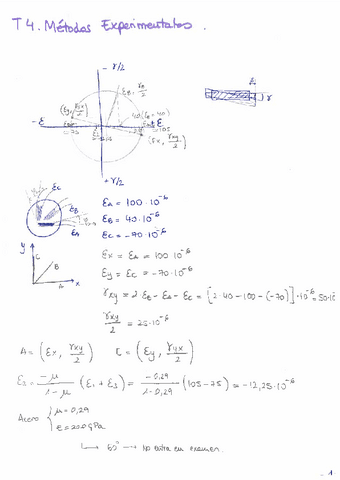 T4. Métodos Experimentales.
- γ/2
εB, γB/2
- ε
ε
(εx, γxy/2)
+ γ/2
εC
εB
εA
εA = 100·10⁻⁶
εB = 40·10⁻⁶
εC = -70·10⁻⁶
y
C
B
A
x
εx = εA = 100·10⁻⁶
εy = εC = -70·10⁻⁶
γxy = 2·εB - εA - εC = [2·40-100-(-70)]·10⁻⁶ = 50·10
γxy/2 = 25·10⁻⁶
A = (εx, γxy/2) C = (εy, γyx/2)
ε2 = -μ/1-μ (ε1 + ε3) = -0,29/1-0,29 (105-75) = -12,25·10⁻⁶
Acero { μ = 0,29
e = 200 GPa
↳ 60° → No entra en examen.